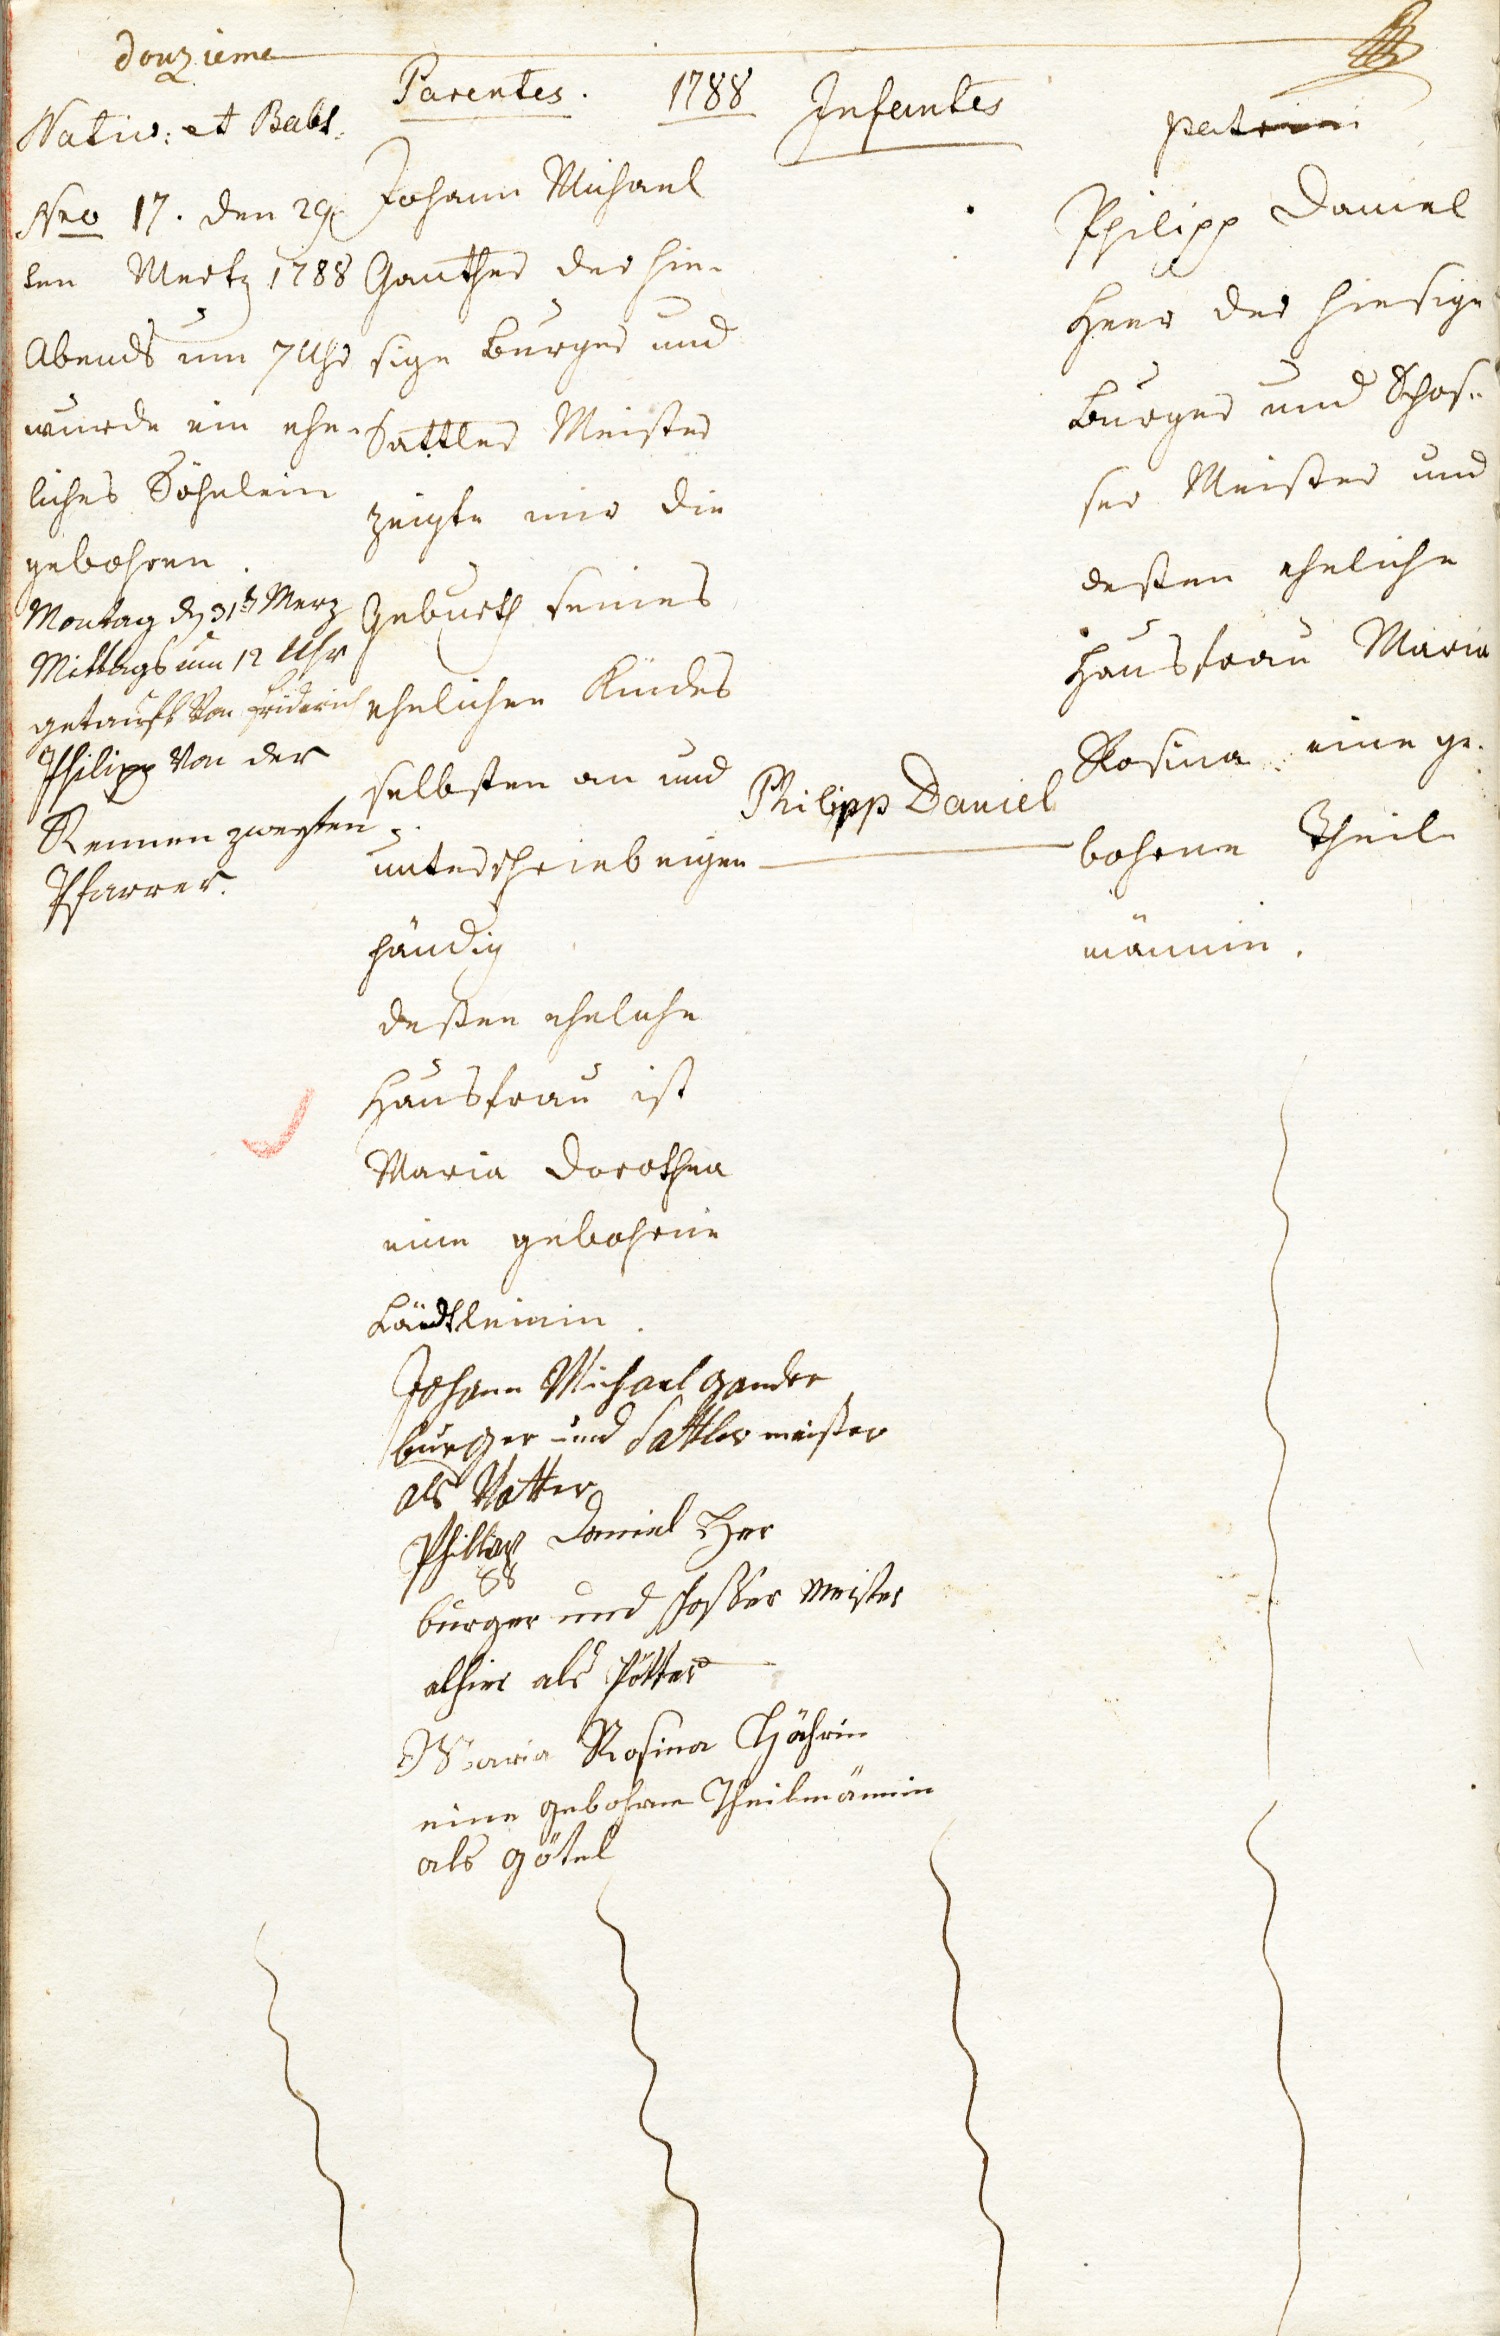 douzieme
Nativ: et Babt.
Nro 17. den 29
ten Mertz 1788
Abends um 7 Uhr
wurde ein ehe-
liches Söhnlein
gebohren.
Montag d 31t Merz
Mittags um 12 Uhr
getaufft von Friderich
Philipp von der
Rennen zweyten
Pfarrer.
Parentes. 1788
Johann Michael
Ganther der hie-
sige Burger und
Sattler Meister
zeigte mir die
Geburth seines
ehelichen Kindes
selbsten an und
unterschrieb eigen
händig
deßen eheliche
Hausfrau ist
Maria Dorothea
eine gebohrne
Johann Michael gander
burger und Sattler meister
als Vatter
Philipp Daniel Her
burger und schosser Meister
alhier als Pötter
Maria Rosina Höhrin
eine gebohrne Theilmännin
als götel
Infantes
Philipp Daniel
patrini
Philipp Daniel
Heer der hiesige
Burger und Schos-
ser Meister und
deßen eheliche
Hausfrau Maria
Rosina eine ge-
bohrne Theil-
männin.